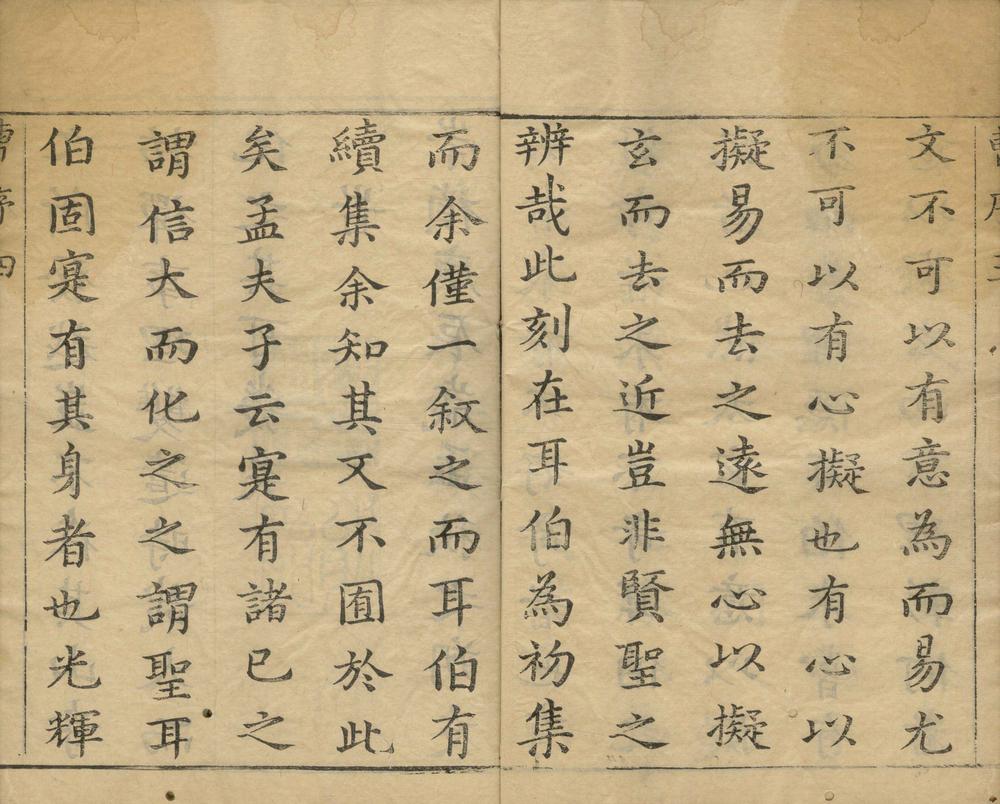 文不可以有意為而易尤
不可以有心擬也有心以
擬易而去之遠無心以擬
玄而去之近豈非賢聖之
辨哉此刻在耳伯為初集
而余僅一敘之而耳伯有
續集余知其又不囿於此
矣孟夫子云寔有諸已之
謂信大而化之之謂聖耳
伯固寔有其身者也光輝
序四